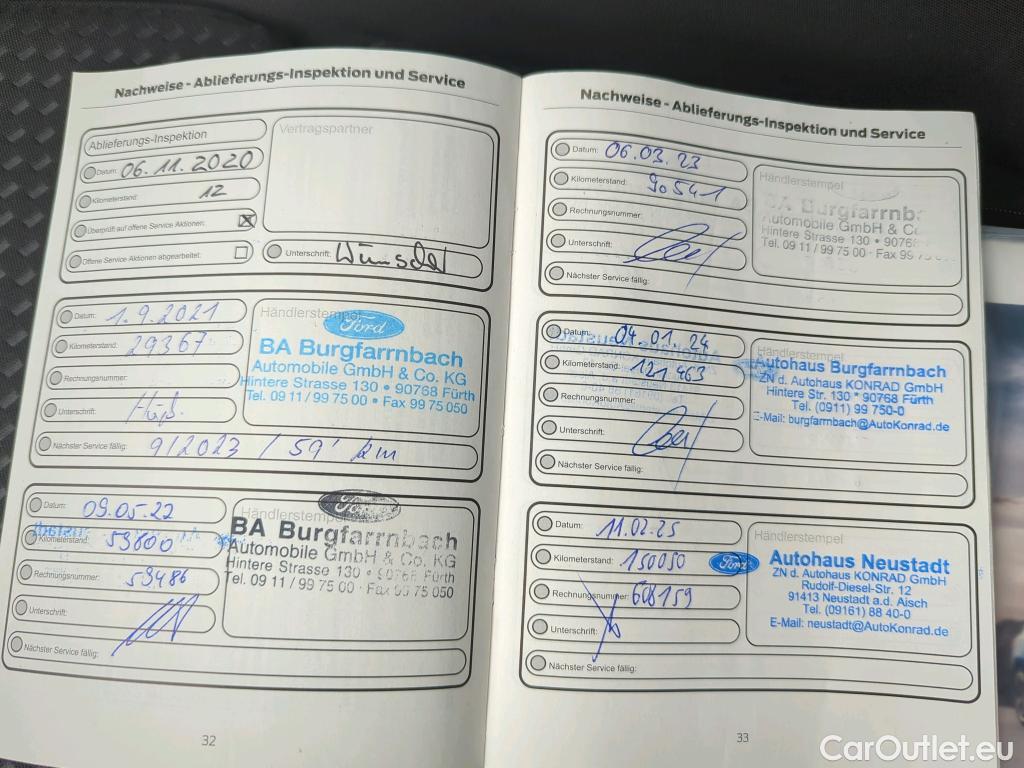 Nachweise - Ablieferungs-Inspektion und Service
Ablieferungs-Inspektion
Datum: 06.11.2020
Kilometerstand: 12
Überprüft auf offene Service Aktionen:
Offene Service Aktionen abgearbeitet:
Vertragspartner
Unterschrift:
Datum: 1.9.2021
Kilometerstand: 29367
Rechnungsnummer:
Unterschrift:
Nächster Service fällig: 9/2023 / 59' km
Händlerstempel
Ford
BA Burgfarrnbach
Automobile GmbH & Co. KG
Hintere Strasse 130 • 90768 Fürth
Tel. 09 11 / 99 75 00 • Fax 99 75 050
Datum: 09.05.22
Kilometerstand: 53800
Rechnungsnummer: 59486
Unterschrift:
Nächster Service fällig:
Händlerstempel
Ford
BA Burgfarrnbach
Automobile GmbH & Co. KG
Hintere Strasse 130 • 90768 Fürth
Tel. 09 11 / 99 75 00 · Fax 99 75 050
32
Nachweise - Ablieferungs-Inspektion und Service
Datum: 06.03.23
Kilometerstand: 90541
Rechnungsnummer:
Unterschrift:
Nächster Service fällig:
Händlerstempel
BA Burgfarrnba
Automobile GmbH & Co.
Hintere Strasse 130 • 90768
Tel. 09 11 / 99 75 00 · Fax 99 75
Datum: 04.01.24
Kilometerstand: 121463
Rechnungsnummer:
Unterschrift:
Nächster Service fällig:
Händlerstempel
Autohaus Burgfarrnbach
ZN d. Autohaus KONRAD GmbH
Hintere Str. 130 • 90768 Fürth
Tel. (0911) 99 750-0
E-Mail: burgfarrnbach@AutoKonrad.de
Datum: 11.02.25
Kilometerstand: 150050
Rechnungsnummer: 608159
Unterschrift:
Nächster Service fällig:
Händlerstempel
Ford
Autohaus Neustadt
ZN d. Autohaus KONRAD GmbH
Rudolf-Diesel-Str. 12
91413 Neustadt a.d. Aisch
Tel. (09161) 88 40-0
E-Mail: neustadt@AutoKonrad.de
33
CarOutlet.eu